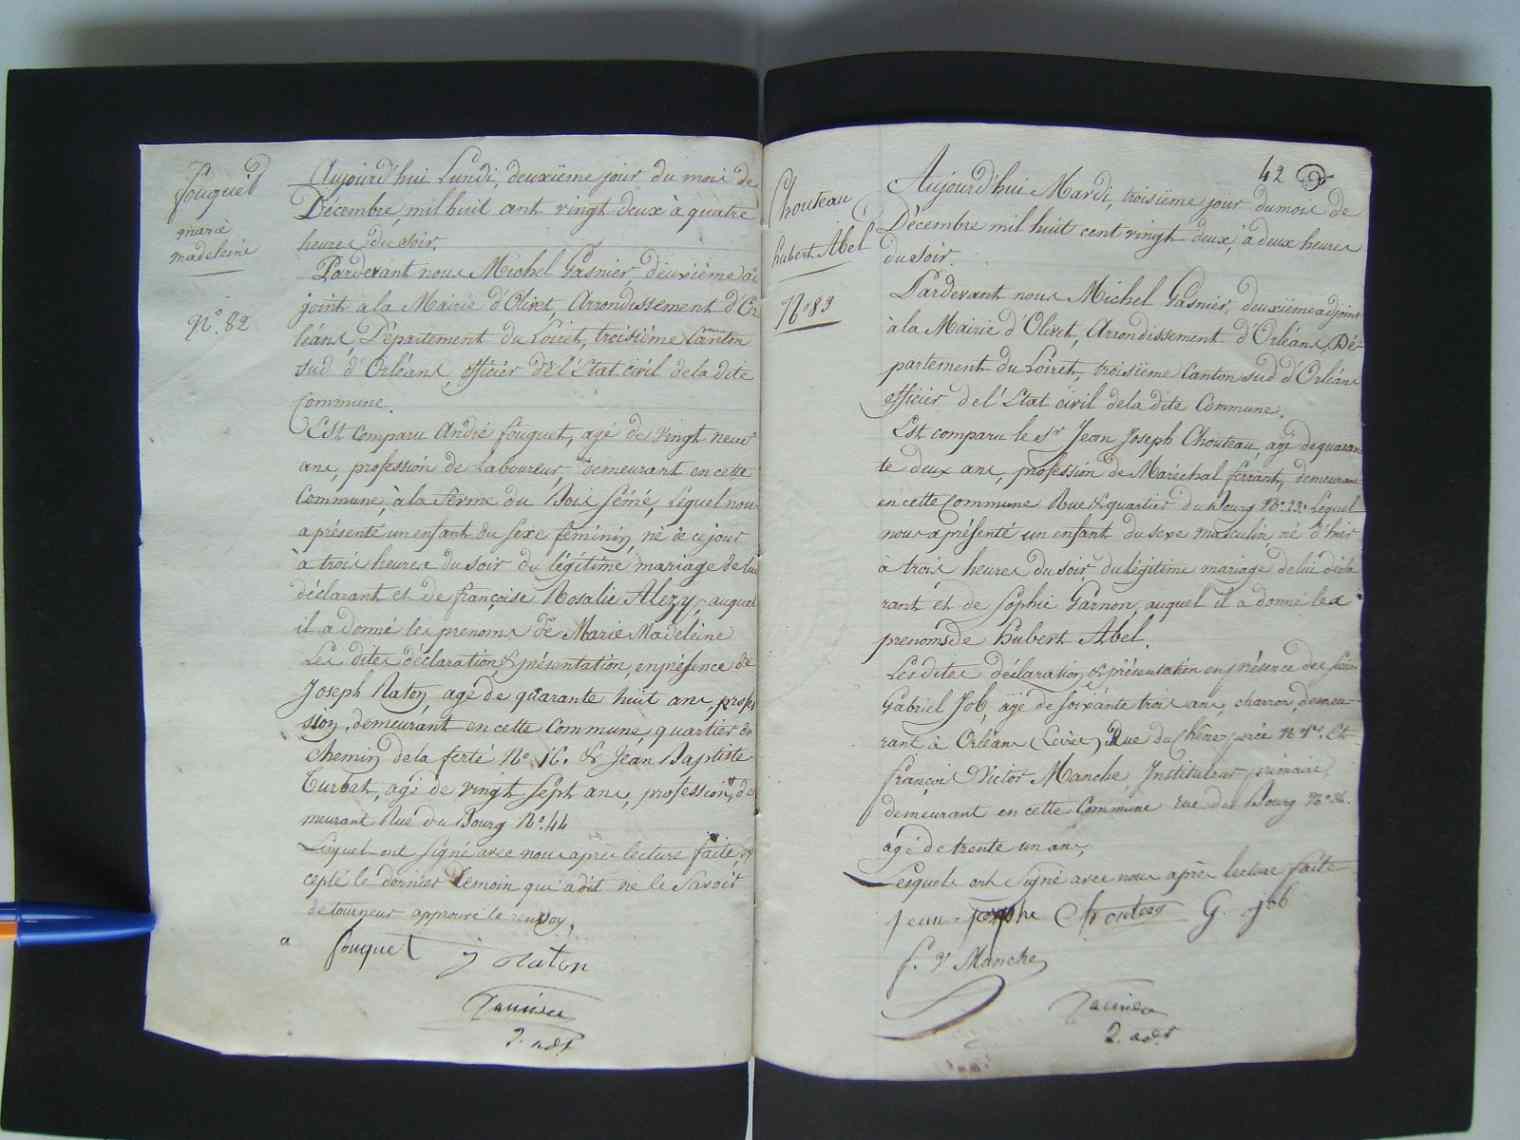 fouquet
marie
madeleine
N.º 82
Aujourd'hui Lundi, deuxième jour du mois de
Décembre, mil huit cent vingt deux à quatre
heures du soir.
Pardevant nous Michel Gasnier, deuxième ad
joint à la Mairie d'Olivet, Arrondissement d'Or
léans, Département du Loiret, troisième Canton
sud d'Orléans, officier de l'Etat civil de la dite
Commune.
Est comparu André fouquet, agé de vingt neuf
ans, profession de Laboureur, demeurant en cette
Commune, à la ferme du Bois sémé, Lequel nous
a présenté un enfant du sexe féminin, né de ce jour
à trois heures du soir du légitime mariage de lui
déclarant et de françoise Rosalie Alezy, auquel
il a donné les prenoms de Marie Madeleine
Les dites déclaration & présentation, en présence de
Joseph Raton, agé de quarante huit ans, profes
sion, demeurant en cette Commune, quartier du
chemin de la ferté N.º 16. & Jean Baptiste
Turbat, agé de vingt sept ans, profession, de
meurant Rue du Bourg N.º 44
Lesquels ont signé avec nous après lecture faite, ex
cepté le dernier temoin qui a dit ne le savoir
de tourneur approuvé le renvoy.
a
fouquet j Raton
Gasnier
2. adjt
42
Chouteau
hubert Abel
N.º 83
Aujourd'hui Mardi, troisième jour du mois de
Décembre mil huit cent vingt deux, à deux heures
du soir.
Pardevant nous Michel Gasnier, deuxième adjoint
à la Mairie d'Olivet, Arrondissement d'Orléans, Dé-
partement du Loiret, troisième Canton sud d'Orléans
officier de l'Etat civil de la dite Commune.
Est comparu le Sr Jean Joseph Chouteau, agé de quaran
te deux ans, profession de Maréchal ferrant, demeurant
en cette Commune Rue & quartier du Bourg N.º 23. Lequel
nous a présenté un enfant du sexe masculin né d'hier
à trois heures du soir du légitime mariage de lui décla
rant et de Sophie Garnon, auquel il a donné les
prenoms de hubert Abel.
Les dites déclaration & présentation en présence des sieurs
Gabriel Job, agé de soixante trois ans, charron, demeu-
rant à Orléans (Loiret) Rue du Chêne percé N.º 1er. Et
françois Victor Manche Instituteur primaire,
demeurant en cette Commune rue du Bourg N.º 36.
agé de trente un ans,
Lesquels ont signé avec nous après lecture faite
jean joseph Chouteau G. job
f. V Manche
Gasnier
2. adjt